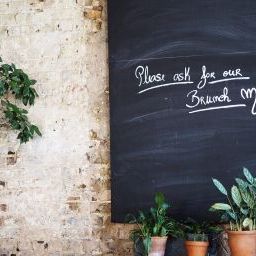 Please ask for our
Brunch